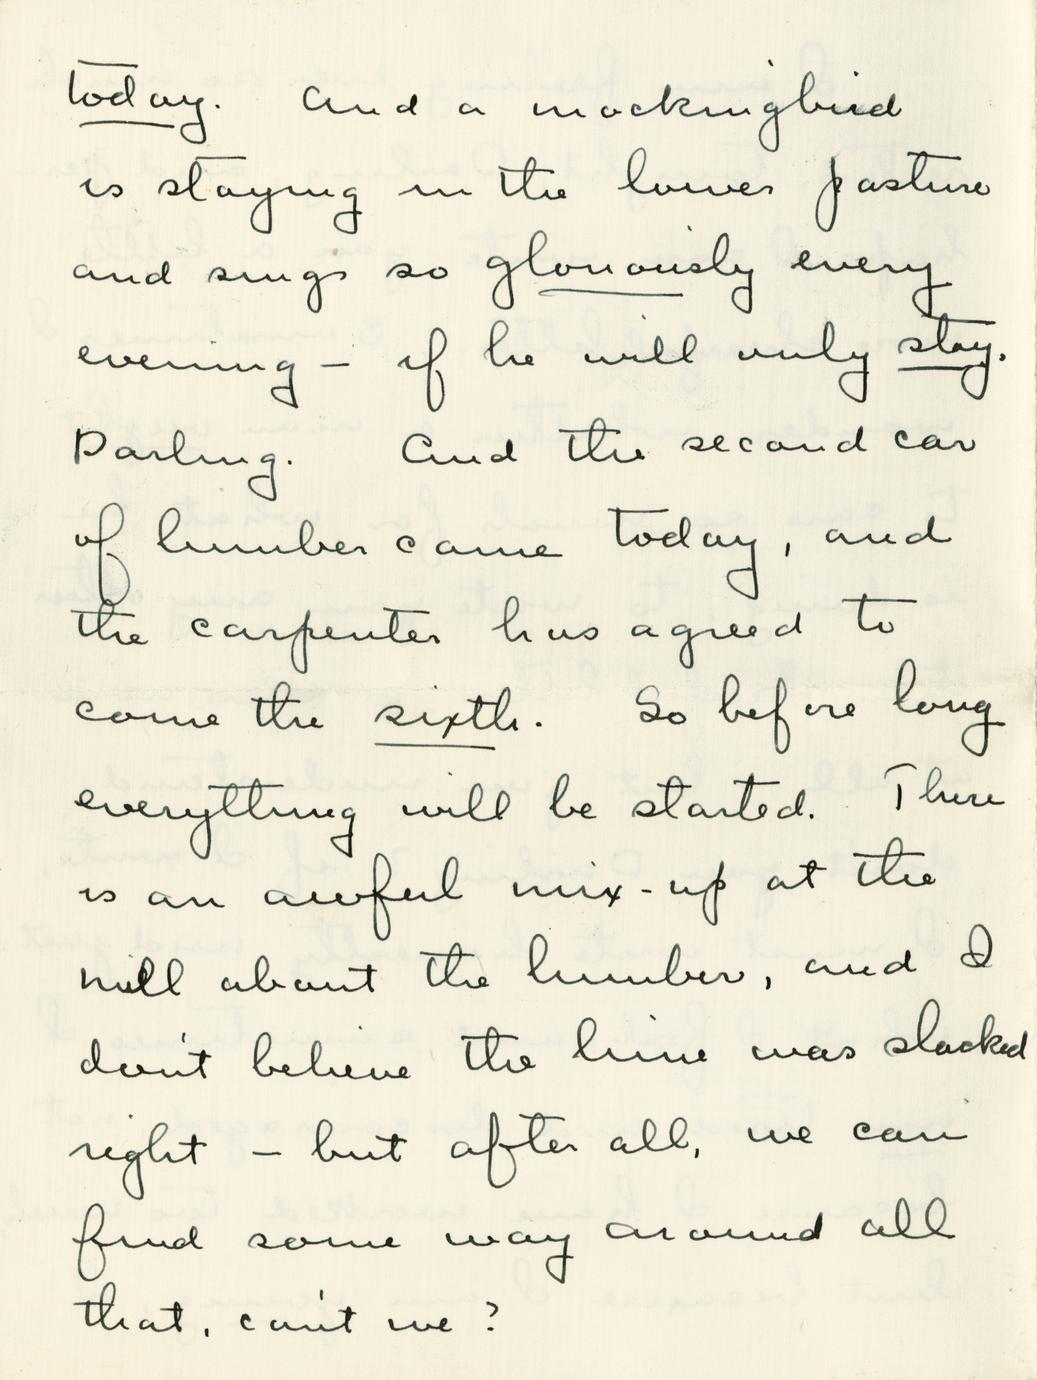 today. And a mockingbird
is staying in the lower pasture
and sings so gloriously every
evening – if he will only stay.
Darling. And the second car
of lumber came today, and
the carpenter has agreed to
come the sixth. So before long
everything will be started. There
is an awful mix-up at the
mill about the lumber, and I
don't believe the lime was slacked
right – but after all, we can
find some way around all
that, can't we?